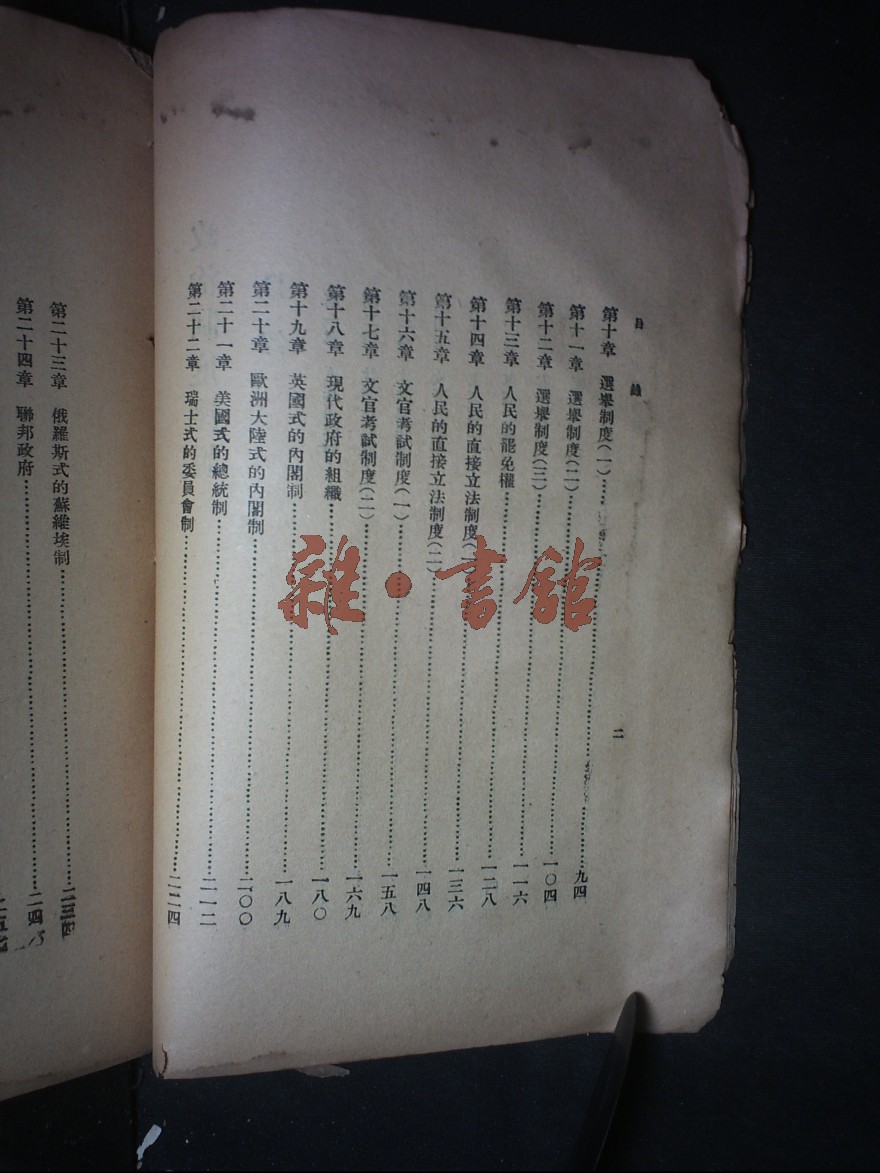 目錄
第十章 選舉制度(一)……九四
第十一章 選舉制度(二)……一〇四
第十二章 選舉制度(三)……一一六
第十三章 人民的罷免權……一二八
第十四章 人民的直接立法制度(一)……一三六
第十五章 人民的直接立法制度(二)……一四八
第十六章 文官考試制度(一)……一五八
第十七章 文官考試制度(二)……一六九
第十八章 現代政府的組織……一八〇
第十九章 英國式的內閣制……一八九
第二十章 歐洲大陸式的內閣制……二〇〇
第二十一章 美國式的總統制……二一二
第二十二章 瑞士式的委員會制……二二四
二
第二十三章 俄羅斯式的蘇維埃制……二三四
第二十四章 聯邦政府……二四
雜·書館